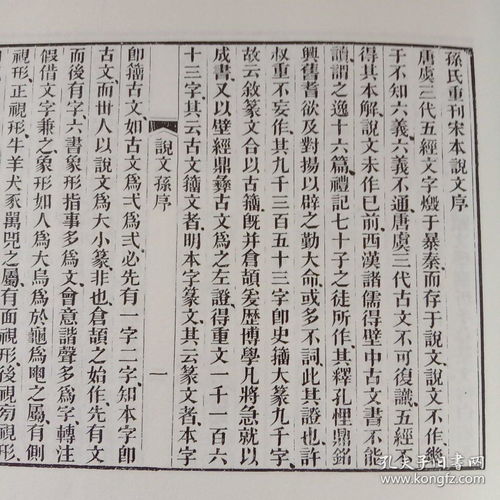 孫氏重刊宋本說文序
唐虞三代五經文字燬于暴秦而存于說文說文不作幾
于不知六義六義不通唐虞三代古文不可復識五經不
得其本解說文未作巳前西漢諸儒得壁中古文書不能
讀謂之逸十六篇禮記七十子之徒所作其釋孔悝鼎銘
興舊耆欲及對揚以辟之勤大命或多不詞此其證也許
叔重不妄作其九千三百五十三字卽史籀大篆九千字
故云敘篆文合以古籀旣并倉頡爰歷博學凡將急就以
成書又以壁經鼎彝古文爲之左證得重文一千一百六
十三字其云古文籀文者明本字篆文其云篆文者本字
說文孫序
一
卽籀古文如古文爲弌爲弍必先有一字二字知本字卽
古文而世人以說文爲大小篆非也倉頡之始作先有文
而後有字六書象形指事多爲文會意諧聲多爲字轉注
假借文字兼之象形如人爲大鳥爲於龜爲之屬有側
視形正視形牛羊犬豕兕之屬有面視形後視形旁視形
孔夫子旧书网
kongfz.com